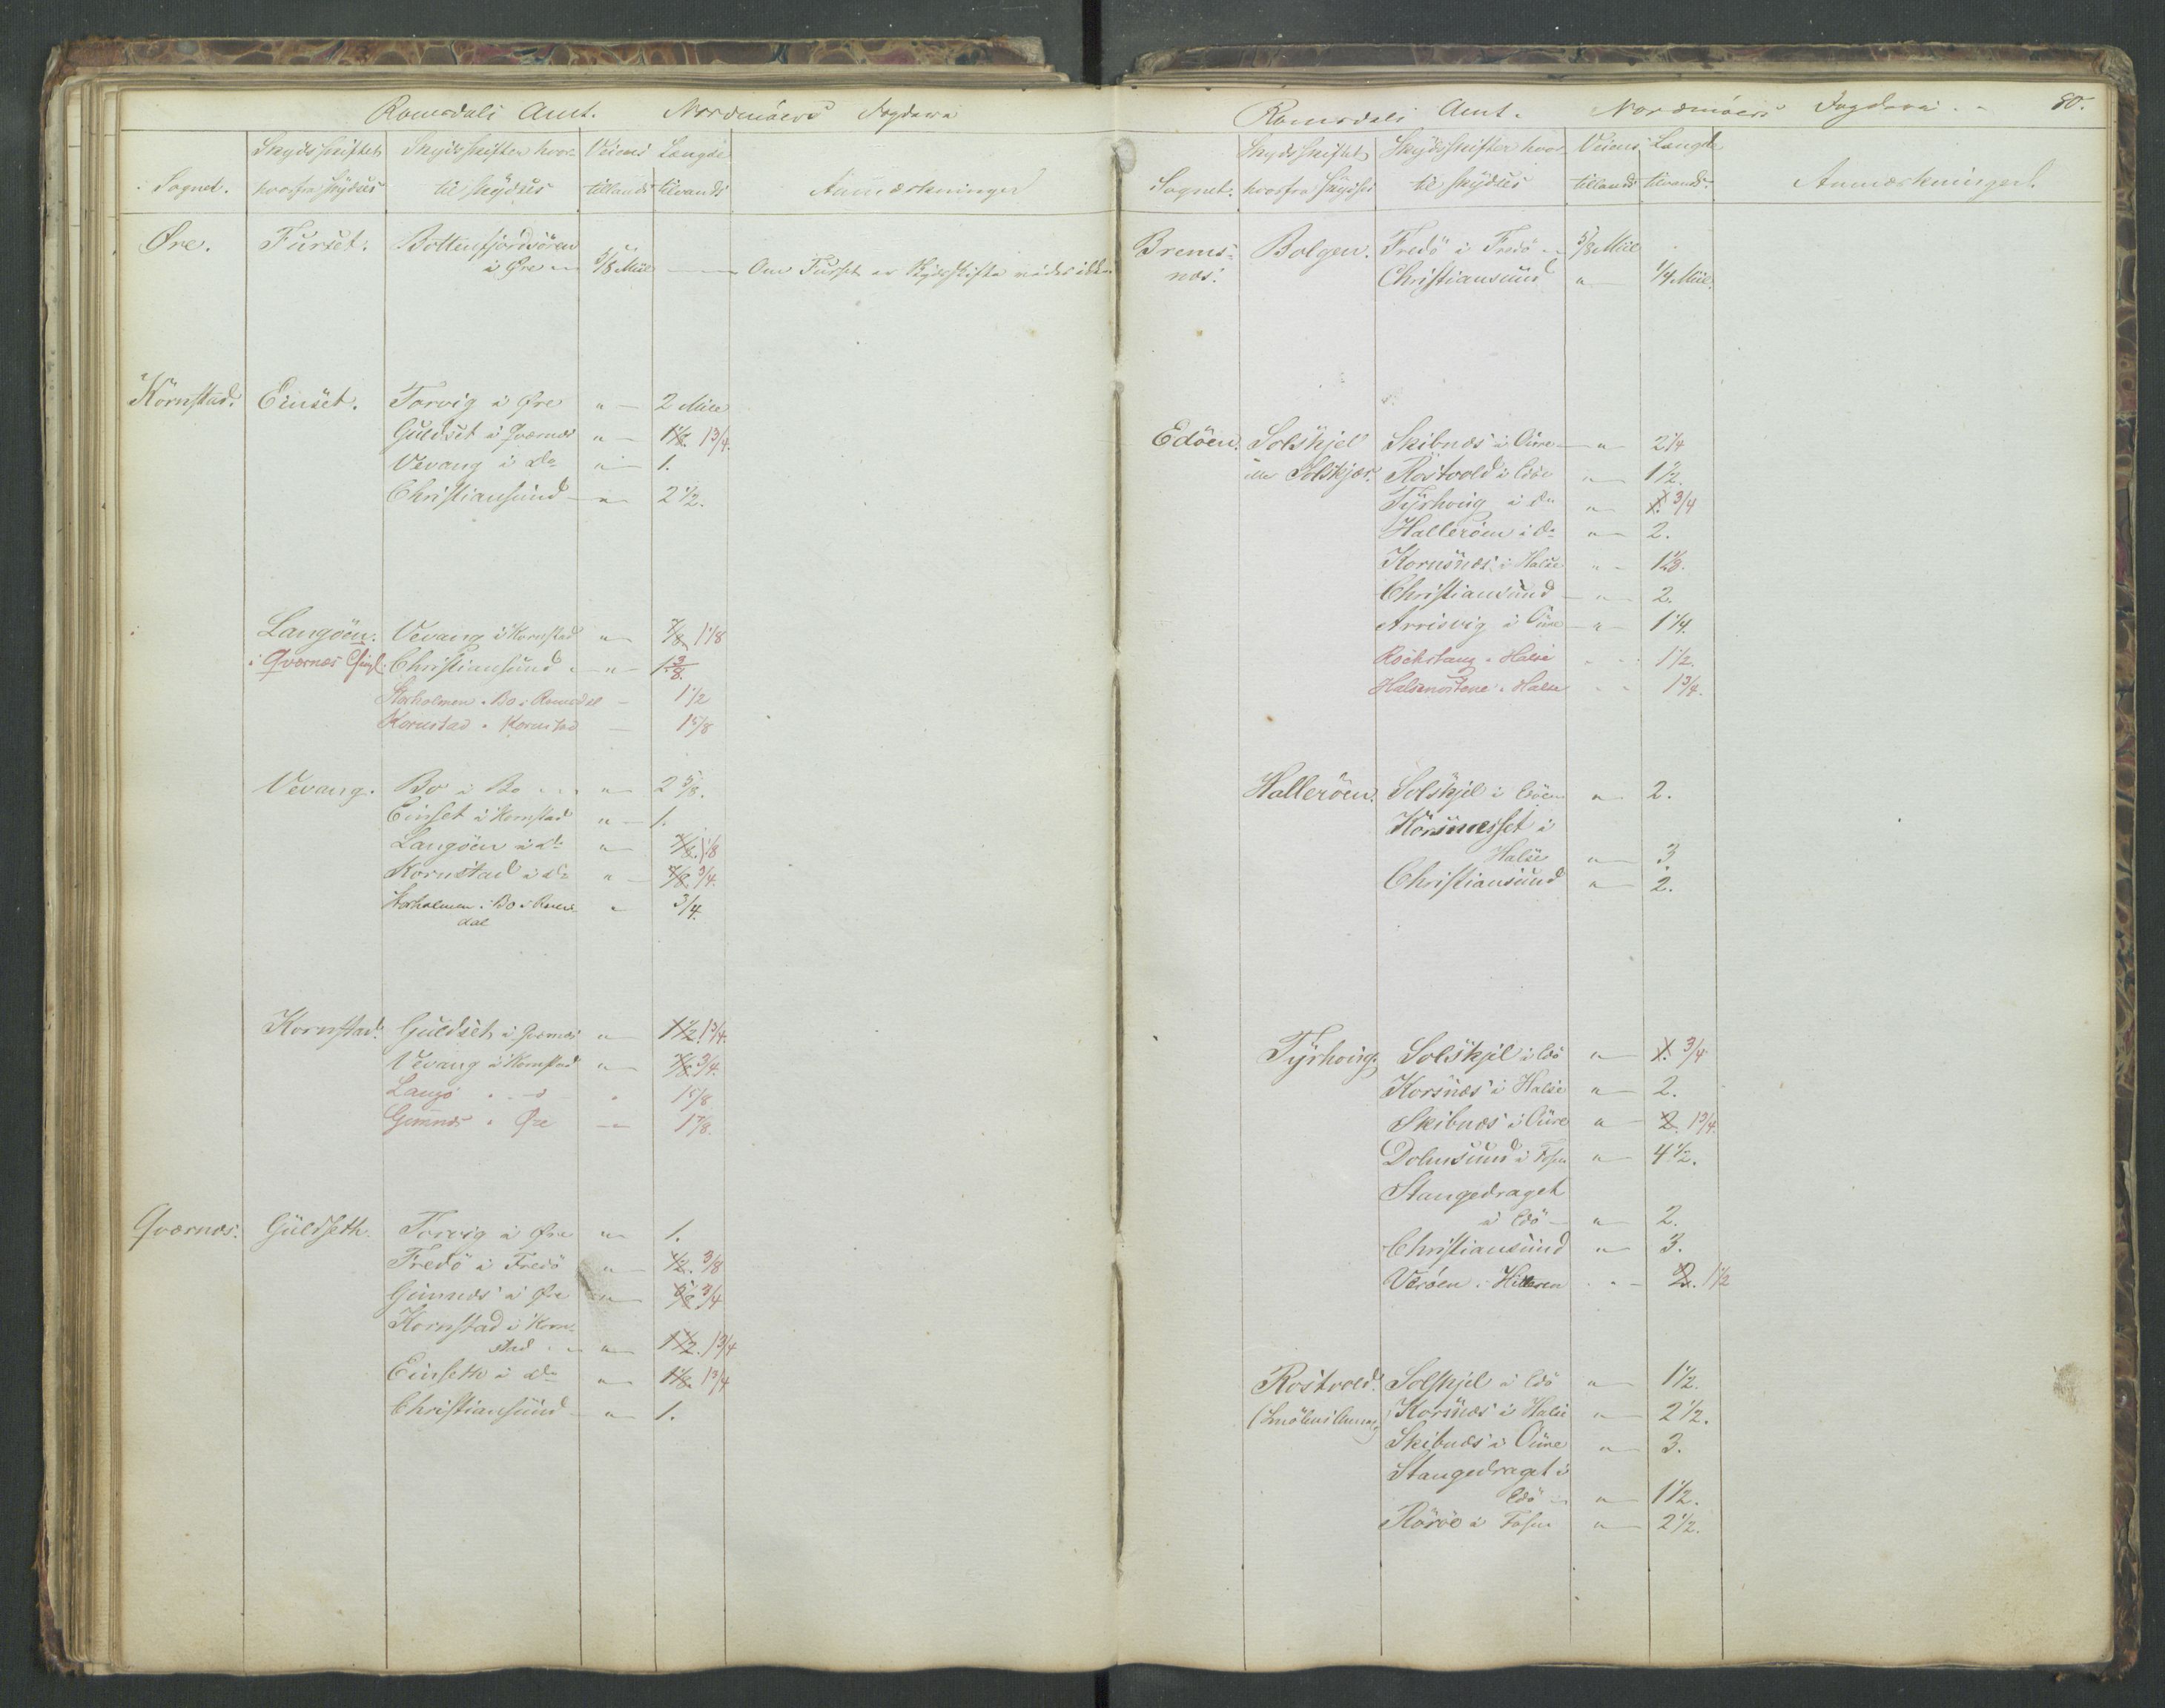 Romsdals Amt. Nordmöers Fogderie
Sognet. Skydsskiftet hvorfra skydses Skydsskifter hvor til skydses Veiens Længde tillands tilvands Anmærkninger
Øre. Furset. Bottenfjordsören
i Øre " 5/8 Miil — Om Furset er Skydsskifte vides ikke
Kornstad. Einset. Torvig i Øre " 2 Mile
Guldset i Qværnes " 1 1/8. 1 3/4.
Vevang i do " 1.
Christiansund " 2 1/2.
Langöen. Vevang i Kornstad " 7/8 1 1/8
i Qværnes Christiansund " 1 3/8.
Storholmen i Bo i Romsdal 1 1/2
Kornstad i Kornstad 1 5/8
Vevang. Bo i Bo " 2 5/8.
Einset i Kornstad " 1.
Langöen i do " 7/8. 1 1/8
Kornstad i do " 7/8. 3/4.
Storholmen i Bo i Roms-
dal " 3/4.
Kornstad. Guldset i Qværnes " 1 1/2. 1 3/4.
Vevang i Kornstad " 7/8. 3/4.
Langö " 1 5/8
Gimnes i Øre 1 7/8.
Qværnes. Guldseth. Torvig i Øre " 1.
Fredö i Fredö " 1/2. 3/8
Gimnes i Øre " 5/8 3/4
Kornstad i Korn-
stad " 1 1/2. 1 3/4
Einseth i do " 1 1/8. 1 3/4
Christiansund " 1.
Romsdals Amt. Nordmöers Fogderie 80.
Sognet. Skydsskiftet hvorfra skydses Skydsskifter hvor til skydses Veiens Længde tillands tilvands Anmærkninger.
Brems- Bolgen. Fredö i Fredö 5/8 Miil
næs. Christiansund " 1/4 Miil.
Edöen. Solskjel Skibnæs i Öure " 2 1/4
eller Solskjær. Rostvold i Edöe " 1 1/2.
Tyrhoug i do " 1. 3/4
Halleröen i do " 2.
Korsnæs i Halse " 1 1/8.
Christiansund " 2.
Arrisvig i Öure " 1 1/4.
Rockstang i Halse " 1 1/2.
Halsenöstene i Halse " 1 3/4.
Halleröen. Solskjel i Edöen " 2.
Korsnesset i
Halse " 3
Christiansund " 2.
Tyrhoug. Solskjel i Edö " 1. 3/4
Korsnæs i Halse " 2.
Skibnæs i Öure " 2. 1 3/4.
Dolmsund i Fosen " 4 1/2.
Stangedraget
i Edö " 2.
Christiansund " 3.
Veröen i Hitteren " 2. 1 1/2
Rostvold. Solskjel i Edö " 1 1/2.
Korsnæs i Halse " 2 1/2.
Skibnæs i Öure " 3.
Stangedraget i
Edö " 1 1/2.
Röröe i Fosen " 2 1/2.